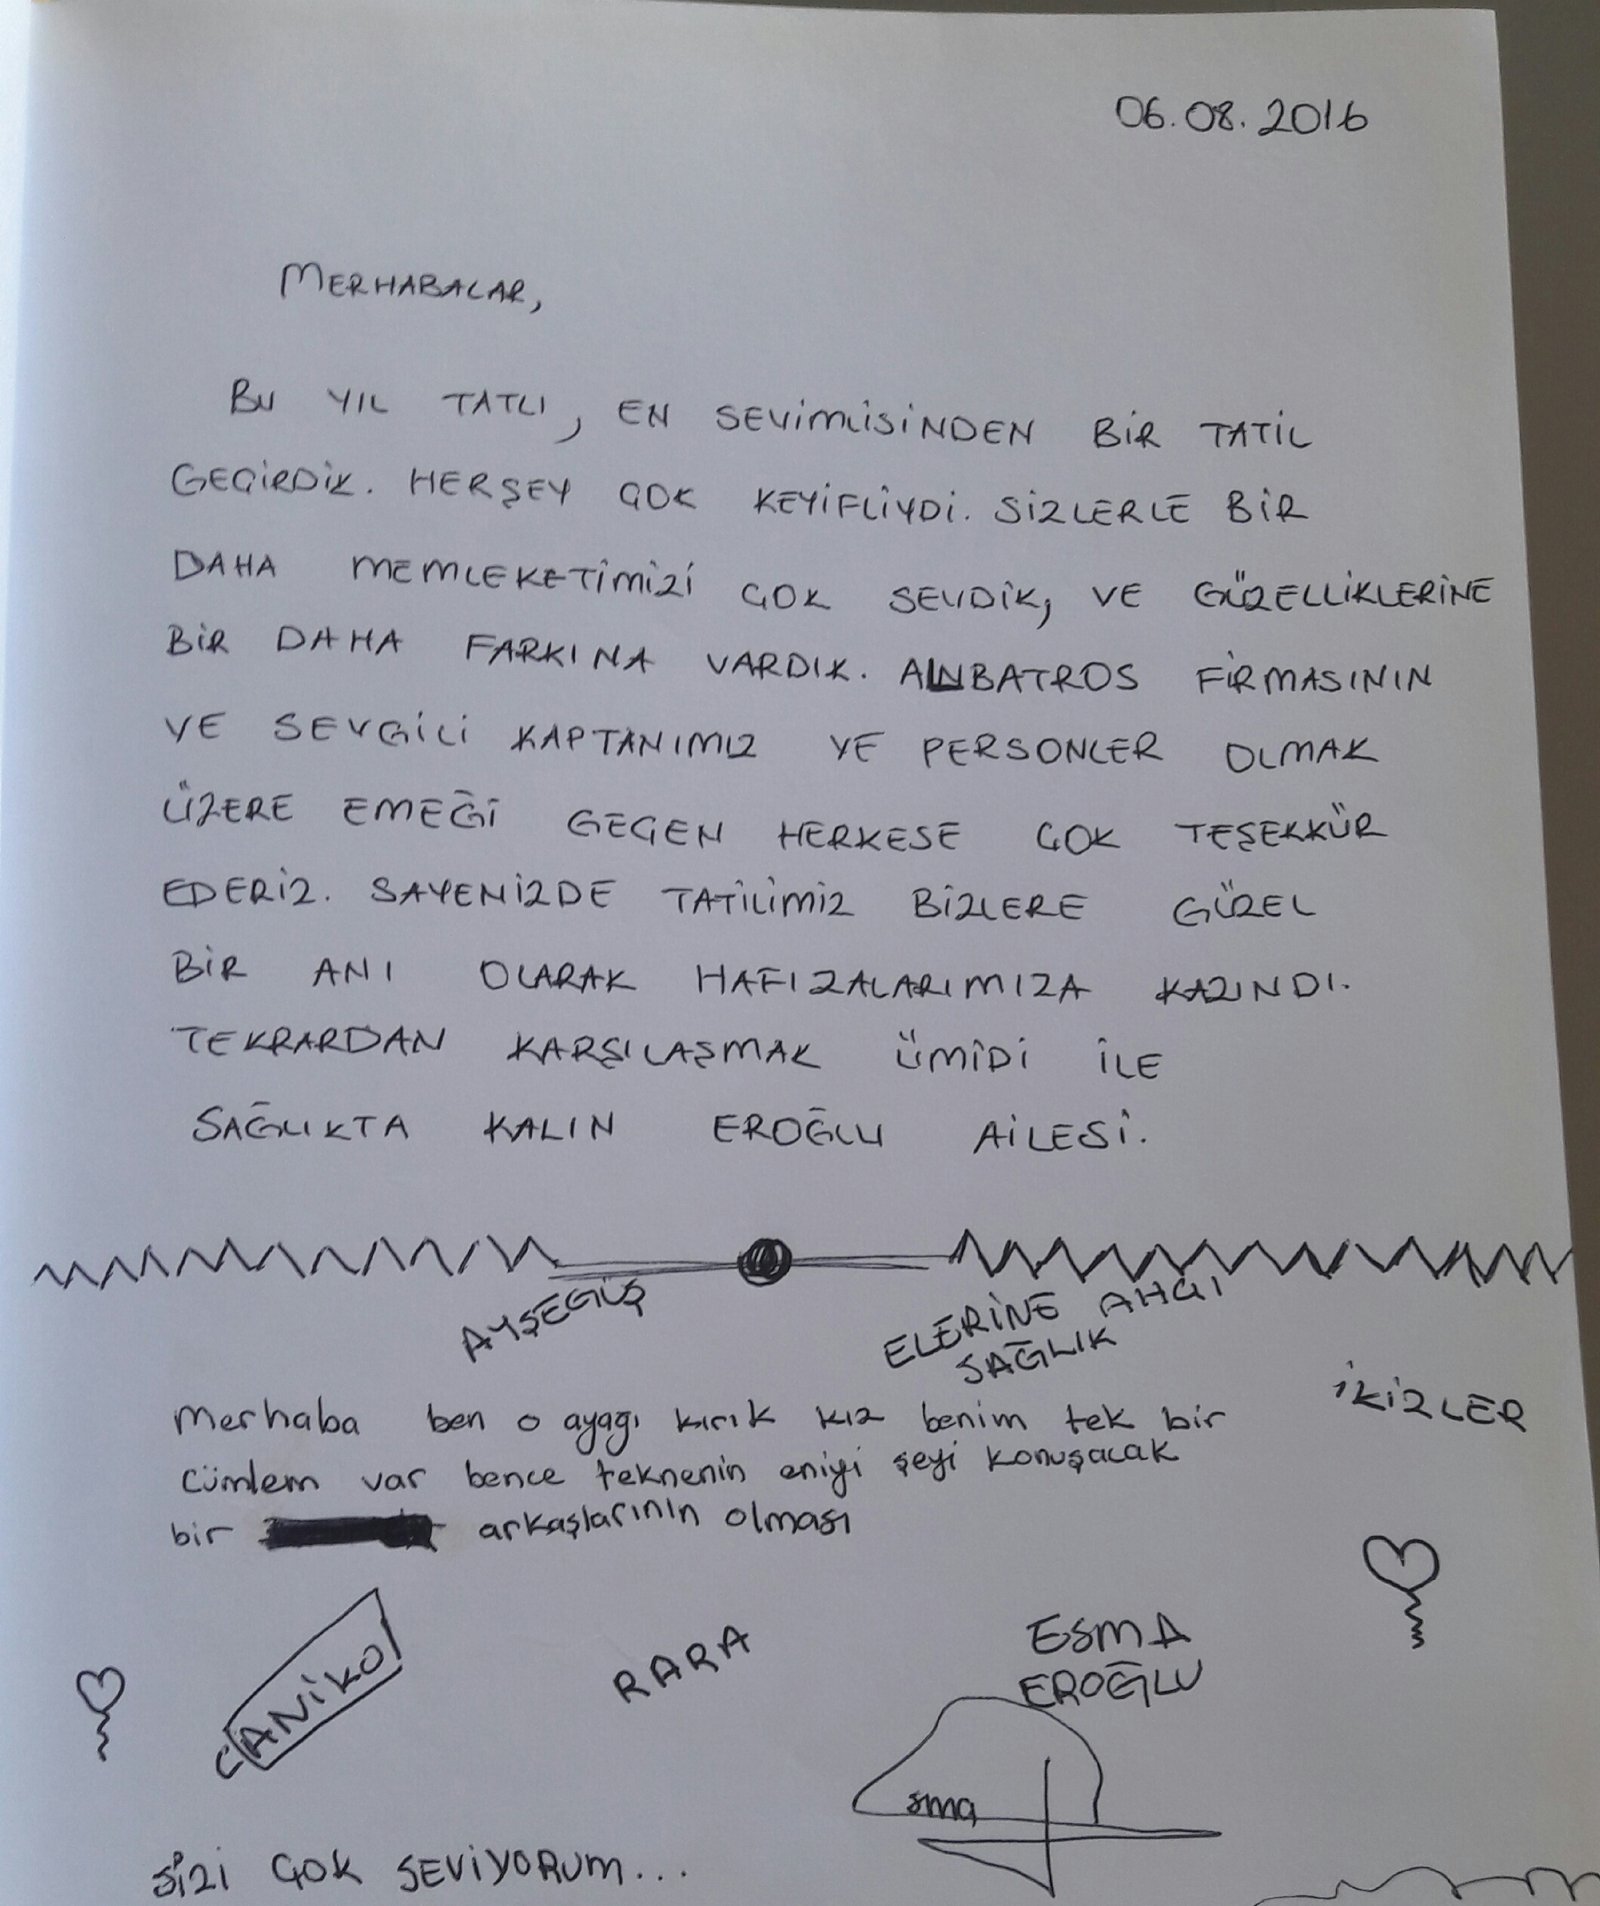 06.08.2016
MERHABALAR,
BU YIL TATLI, EN SEVİMLİSİNDEN BİR TATİL
GEÇİRDİK. HERŞEY ÇOK KEYİFLİYDİ. SİZLERLE BİR
DAHA MEMLEKETİMİZİ ÇOK SEVDİK, VE GÜZELLİKLERİNE
BİR DAHA FARKINA VARDIK. ALNBATROS FİRMASININ
VE SEVGİLİ KAPTANIMIZ VE PERSONLER OLMAK
ÜZERE EMEĞİ GEÇEN HERKESE ÇOK TEŞEKKÜR
EDERİZ. SAYENİZDE TATİLİMİZ BİZLERE GÜZEL
BİR ANI OLARAK HAFIZALARIMIZA KAZINDI.
TEKRARDAN KARŞILAŞMAK ÜMİDİ İLE
SAĞLIKTA KALIN EROĞLU AİLESİ.
AYŞEGÜŞ
ELERİNE AHÇI
SAĞLIK
İKİZLER
Merhaba ben o ayağı kırık kız benim tek bir
cümlem var bence teknenin eniyi şeyi konuşacak
bir arkaşlarının olması
CANİKO
RARA
ESMA
EROĞLU
SİZİ ÇOK SEVİYORUM...